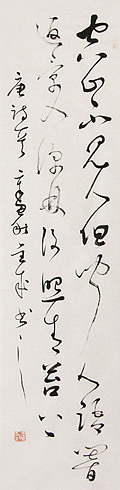 空山不見人但聞人語響
返景入深林復照青苔上
唐詩一首
書